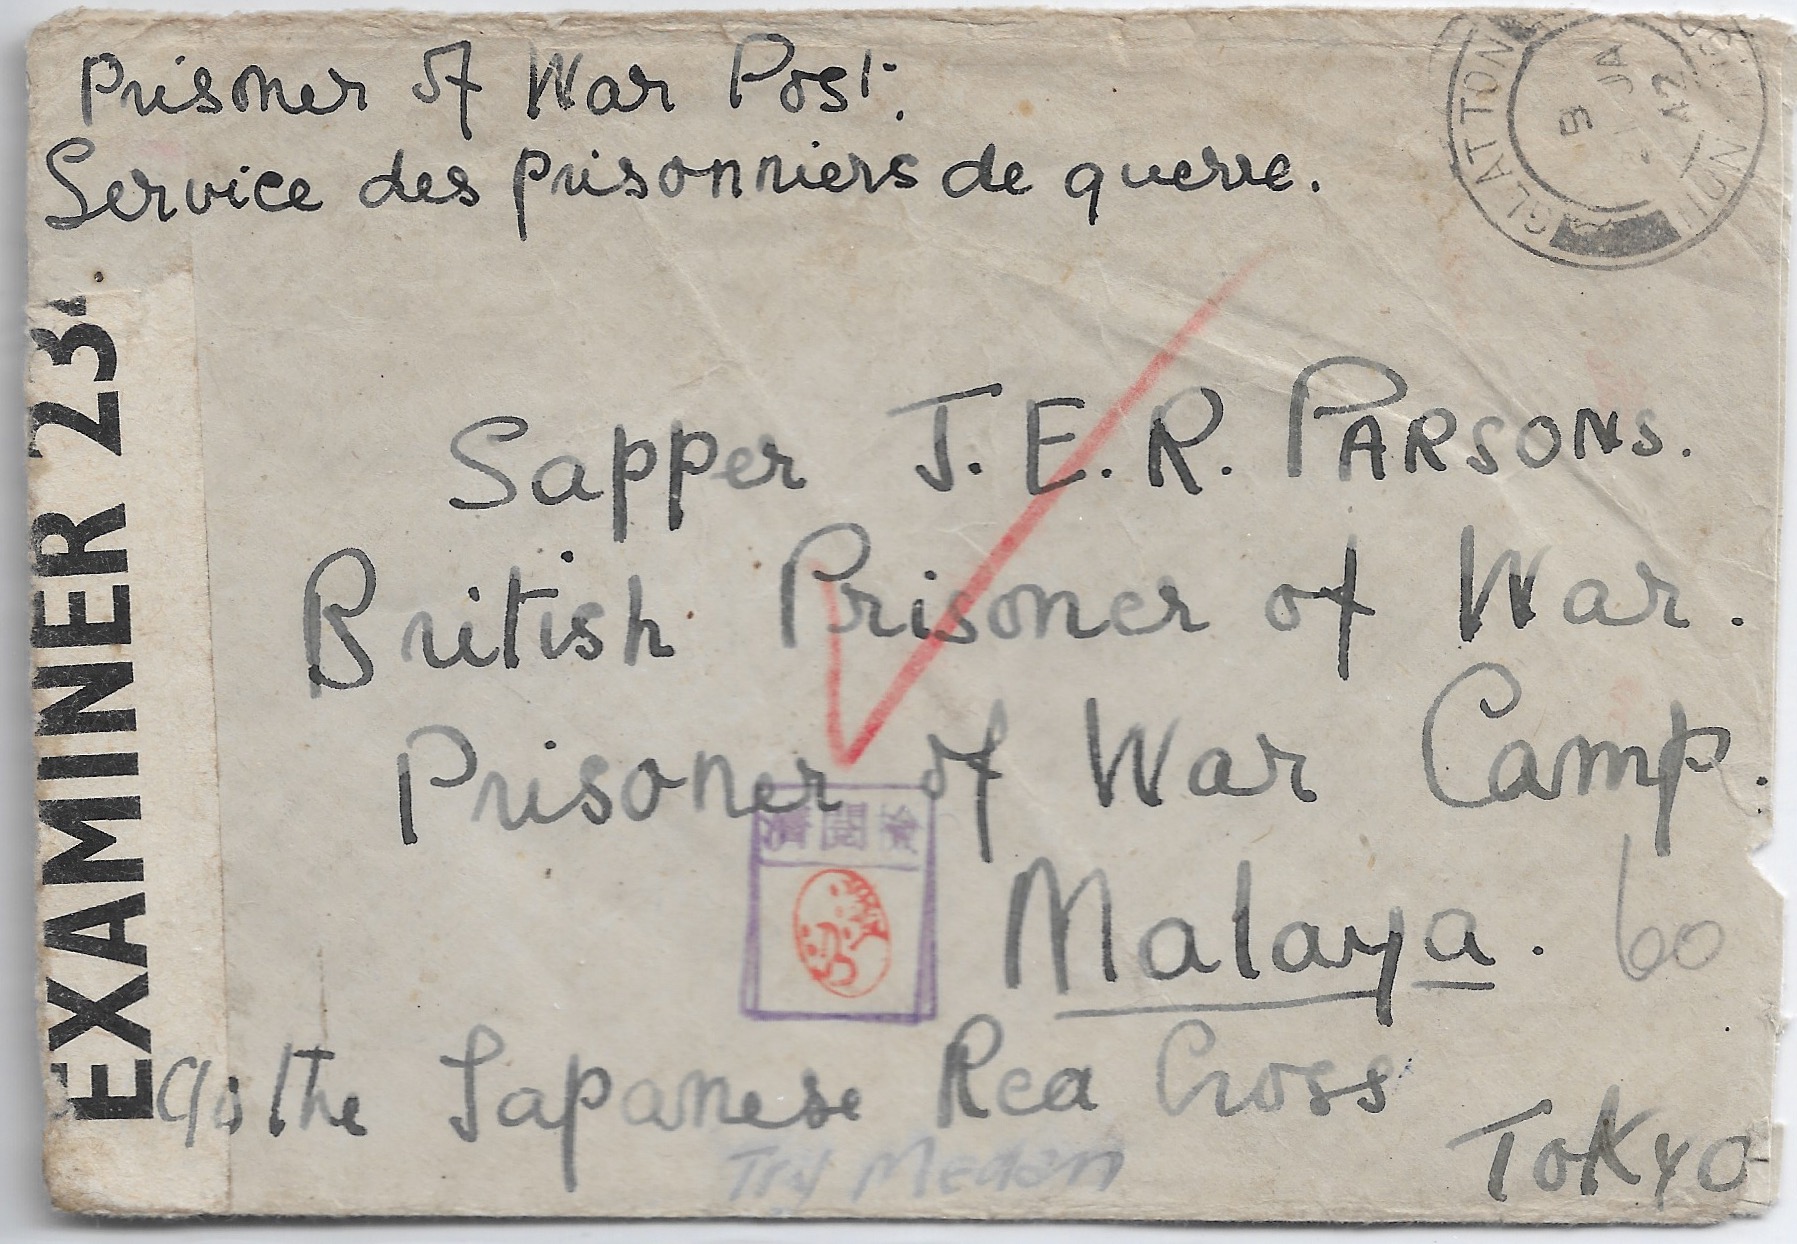 Prisoner of War Post.
Service des prisonniers de guerre.
GLATTON
JA
42
EXAMINER 23
Sapper J. E. R. PARSONS.
British Prisoner of War.
Prisoner of War Camp.
檢閱濟
Malaya. 60
C/o the Japanese Red Cross
Try Medan
TOKYO